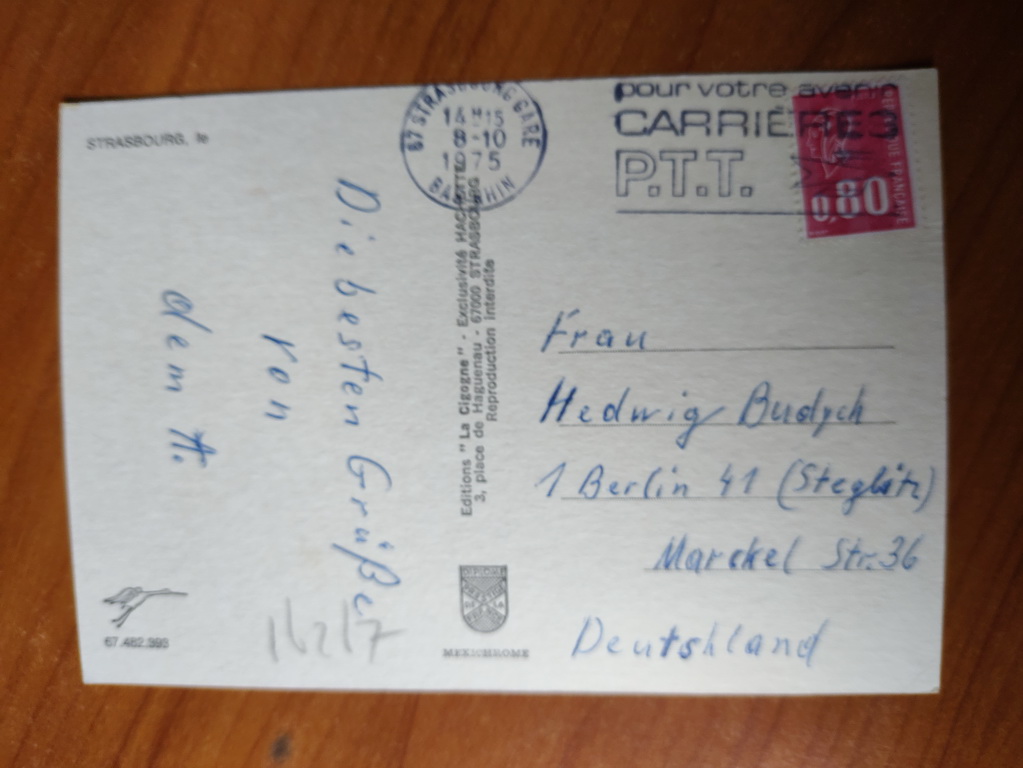 STRASBOURG, le
Die besten Grüße
von
dem A.
67.482.393
Editions "La Cigogne" - Exclusivité HACHETTE
3, place de Haguenau - 67000 STRASBOURG
Reproduction Interdite
MEXICHROME
67 STRASBOURG GARE
14H15
8-10
1975
BAS RHIN
pour votre avenir
CARRIERES
P.T.T.
REPUBLIQUE FRANCAISE
0,80
Frau
Hedwig Budych
1 Berlin 41 (Steglitz)
Marckel Str. 36
Deutshland